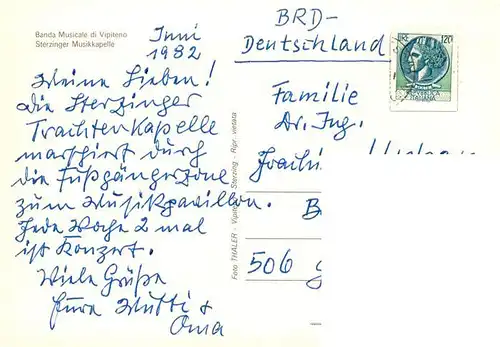 Banda Musicale di Vipiteno
Sterzinger Musikkapelle
Juni
1982
Meine Lieben!
Die Sterzinger
Trachtenkapelle
marschiert durch
die Fußgängerzone
zum Musikpavillon.
Jede Woche 2 mal
ist Konzert.
Viele Grüße
Eure Mutti +
Oma
Foto THALER - Sterzing - Ripr. vietata
BRD-
Deutschland
LIRE 120
ITALIANA
Familie
Dr. Ing.
506